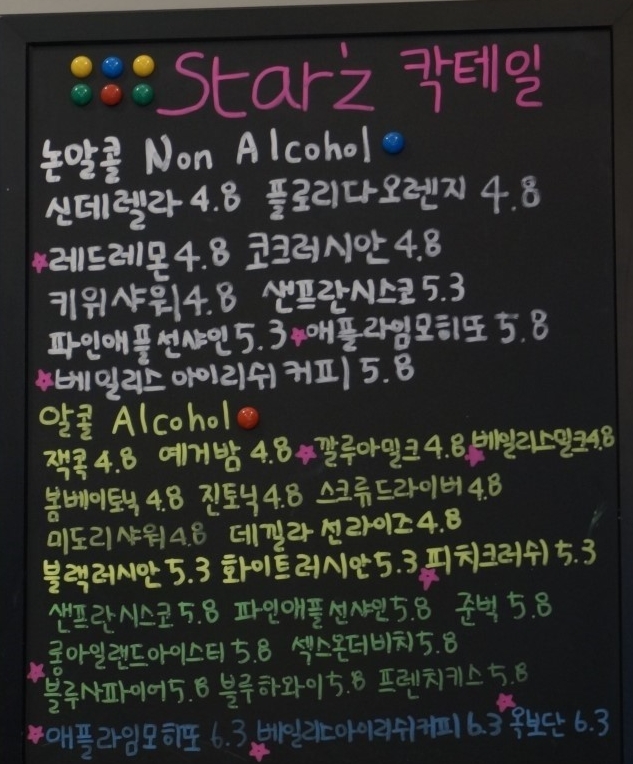 Star'z 칵테일
논알콜 Non Alcohol
신데렐라 4.8 플로리다오렌지 4.8
레드레몬 4.8 코크러시안 4.8
키위샤워 4.8 샌프란시스코 5.3
파인애플선샤인 5.3 애플라임모히또 5.8
베일리스 아이리쉬 커피 5.8
알콜 Alcohol
잭콕 4.8 예거밤 4.8 깔루아밀크 4.8 베일리스밀크 4.8
봄베이토닉 4.8 진토닉 4.8 스크류드라이버 4.8
미도리샤워 4.8 데낄라 선라이즈 4.8
블랙러시안 5.3 화이트러시안 5.3 피치크러쉬 5.3
샌프란시스코 5.8 파인애플선샤인 5.8 준벅 5.8
롱아일랜드아이스티 5.8 섹스온더비치 5.8
블루사파이어 5.8 블루하와이 5.8 프렌치키스 5.8
애플라임모히또 6.3 베일리스아이리쉬커피 6.3 옥보단 6.3